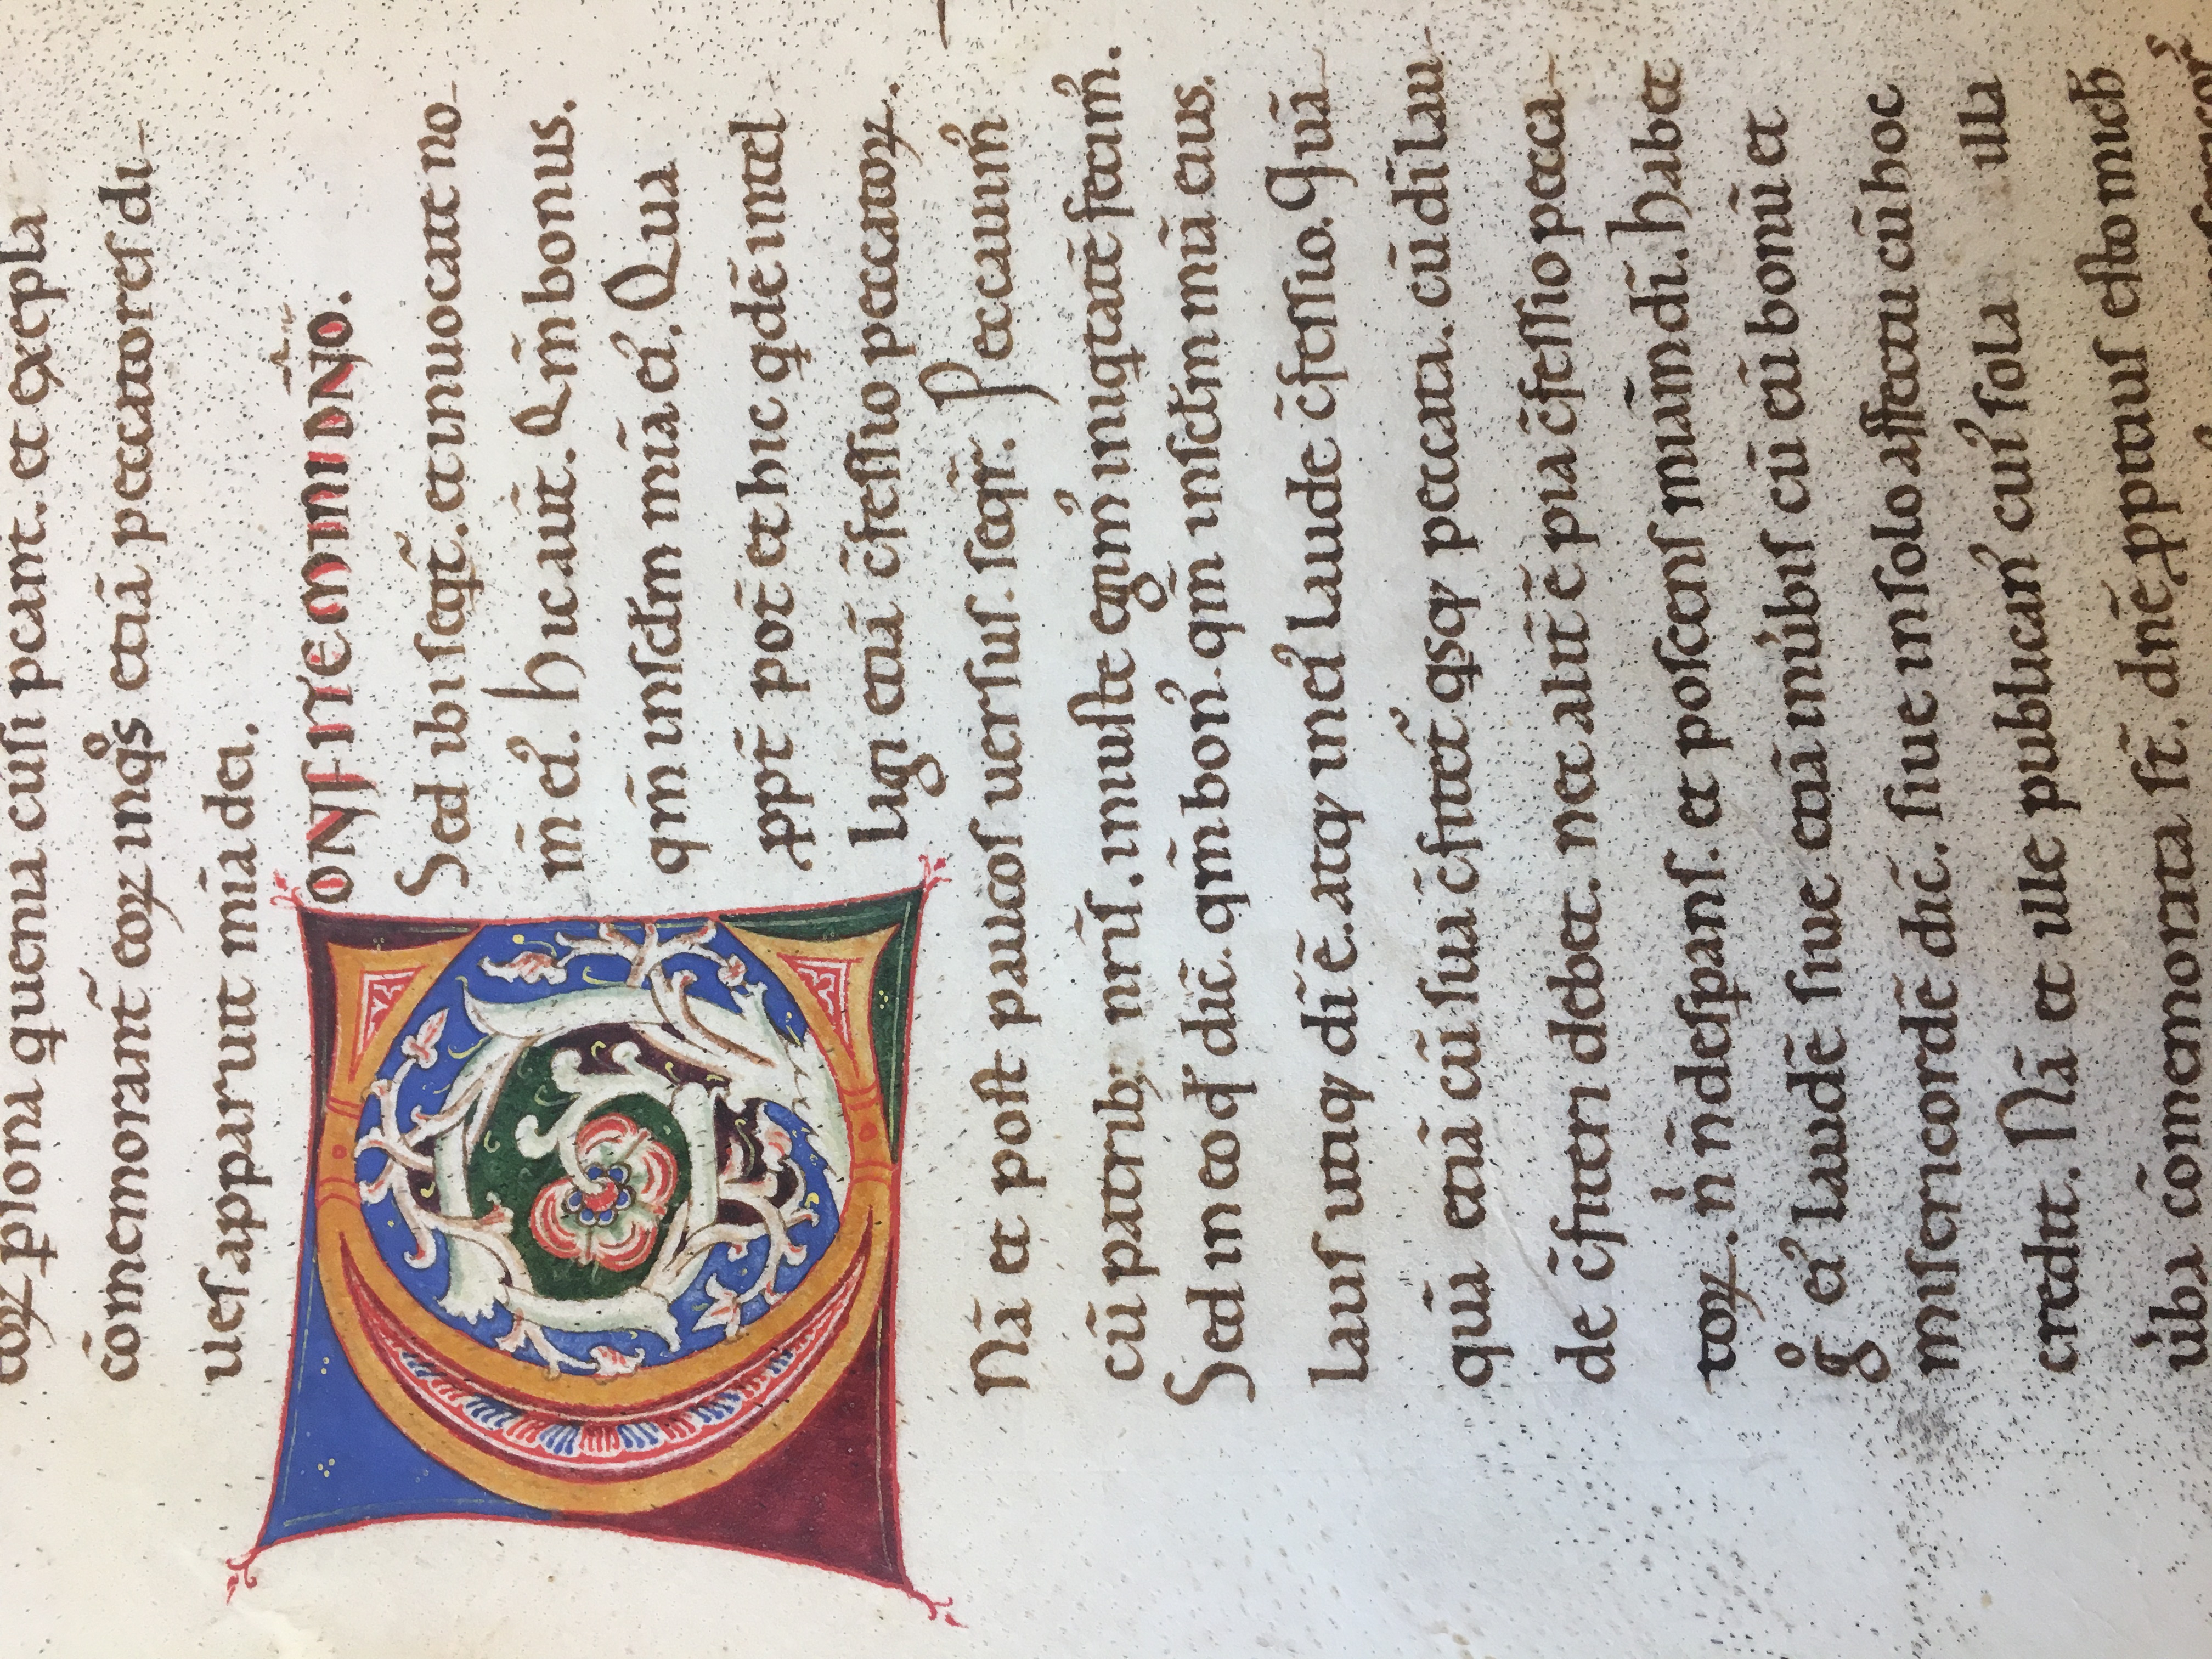 toꝝ psona quenia cūsi pcant. et exēpla
cōmemorant̄ eoꝝ inqͦs etiā peccatores di-
ues apparuit mīa dei.
CONFITEMINI DN̄O.
Sed ibi seqt̄. et inuocate no-
m̄ ei᾽. Huc aut̄. Qm̄ bonus.
qm̄ insclm mīa ei᾽. Qua
ꝓpt̄ pot̄ et hic qdē intel
ligi etiā c̄fessio peccatoꝝ.
Nā et post paucos uersus. seqr̄. Peccauim᾽
cū patrib; nrīs. iniuste egim᾽ iniqtatē fecim᾽.
Sed in eo qđ dic̄. qm̄ bon᾽. qm̄ inscl̄m mīa eius.
Laus utiqꝫ dī ē. atqꝫ in ei᾽ laude c̄fessio. Quā
quā etiā cū sua c̄fitet᾽ qsqꝫ peccata. cū dī lau-
de c̄fiteri debet. nec alit̄ ē pia c̄fessio pecca-
toꝝ. n̄ n̄ despans. et poscens miām dī. Habet
gͦ ei᾽ laudē siue etiā inu̓bis cū cū bonū et
misericordē dic̄. siue insolo affectu cū hoc
credit. Nā et ille publican᾽ cui᾽ sola illa
u̓ba cōmemorata st̄. dnē ꝓpitius esto mich